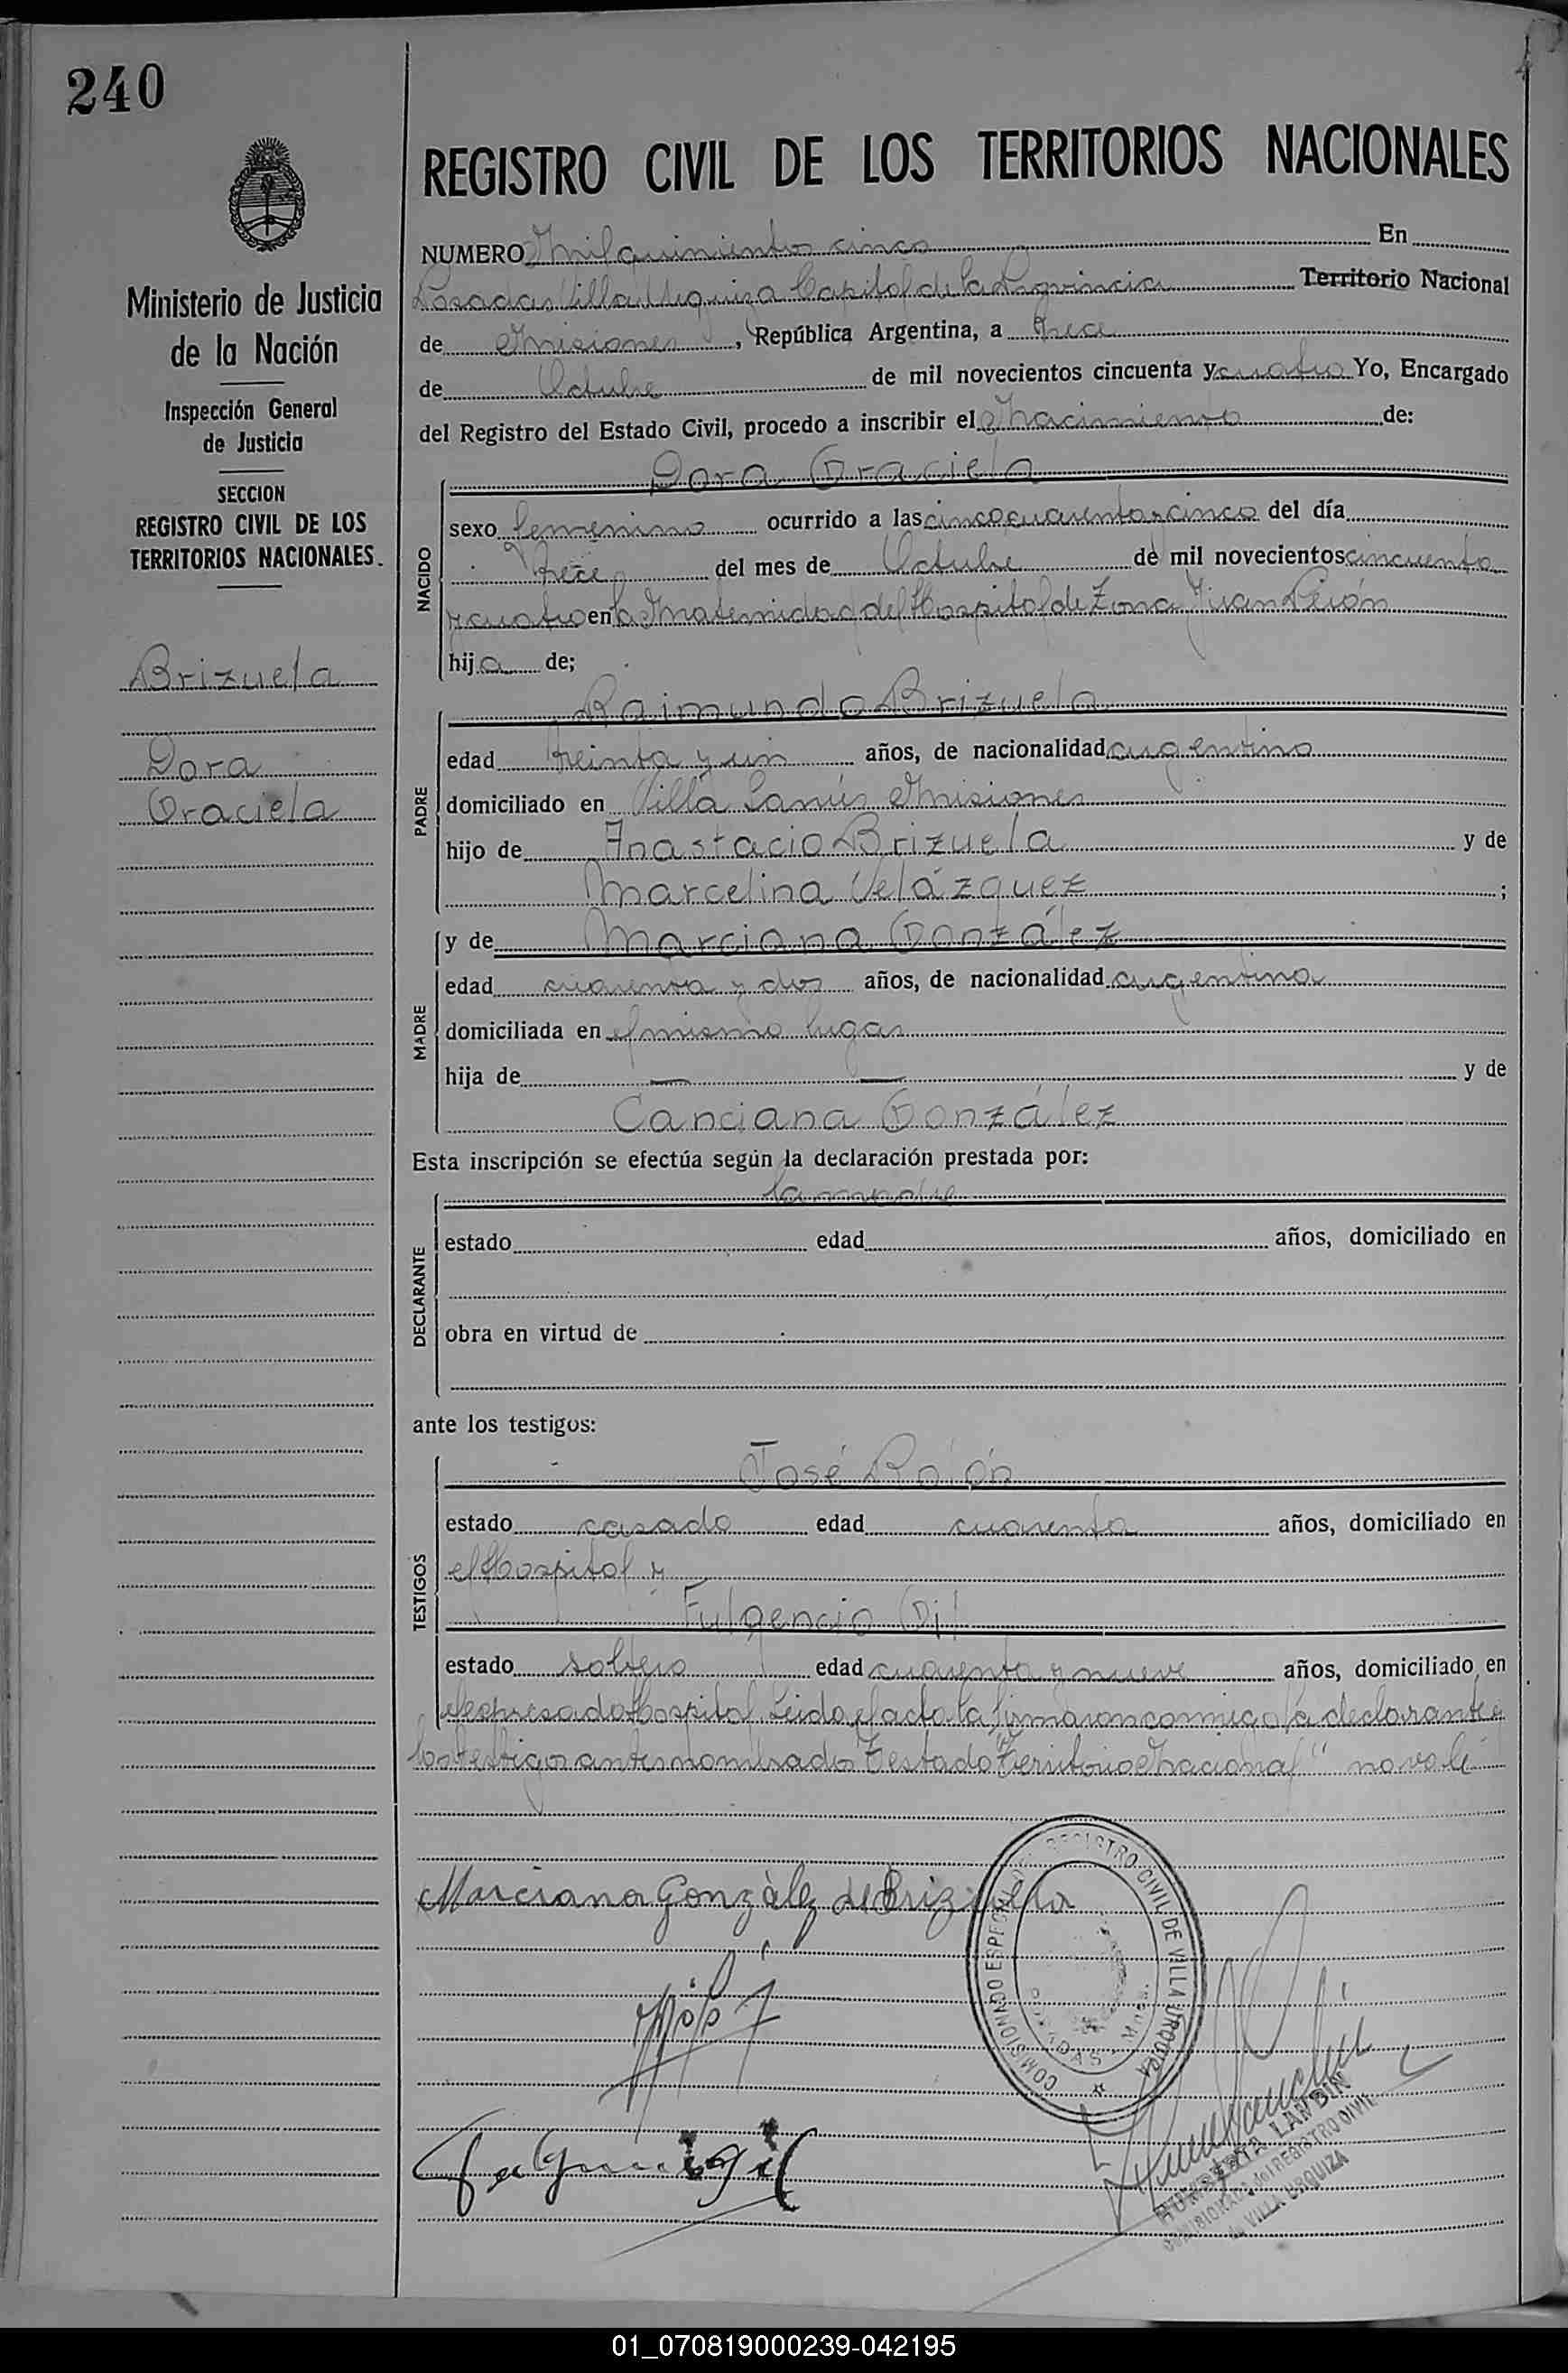 240
REGISTRO CIVIL DE LOS TERRITORIOS NACIONALES
Ministerio de Justicia
de la Nación
Inspección General
de Justicia
SECCION
REGISTRO CIVIL DE LOS
TERRITORIOS NACIONALES.
Brizuela
Dora
Graciela
NUMERO Mil quinientos cinco En
Posadas Villa Urquiza Capital de la Provincia Territorio Nacional
de Misiones, República Argentina, a trece
de Octubre de mil novecientos cincuenta y cuatro Yo, Encargado
del Registro del Estado Civil, procedo a inscribir el Nacimiento de:
Dora Graciela
NACIDO
sexo femenino ocurrido a las cinco cuarenta y cinco del día
trece del mes de Octubre de mil novecientos cincuenta
y cuatro en la Maternidad del Hospital de Zona Juan Perón
hija de;
PADRE
Raimundo Brizuela
edad treinta y un años, de nacionalidad argentino
domiciliado en Villa Lanús Misiones
hijo de Anastacio Brizuela y de
Marcelina Velázquez ;
MADRE
y de Marciana González
edad cuarenta y dos años, de nacionalidad argentina
domiciliada en el mismo lugar
hija de — — y de
Canciana González
Esta inscripción se efectúa según la declaración prestada por:
DECLARANTE
la madre
estado edad años, domiciliado en
obra en virtud de
ante los testigos:
TESTIGOS
José
estado casado edad cuarenta años, domiciliado en
el Hospital y
Fulgencio Gil
estado soltero edad cuarenta y nueve años, domiciliado en
el expresado Hospital. Leida el acta la firmaron conmigo la declarante y
los testigos antes nombrados Testado "Territorio Nacional" no vale
Marciana González de Brizuela
COMISIONADO ESPECIAL DEL REGISTRO CIVIL DE VILLA URQUIZA
POSADAS
LANDIN
COMISIONADA del REGISTRO CIVIL
de VILLA URQUIZA
01_070819000239-042195